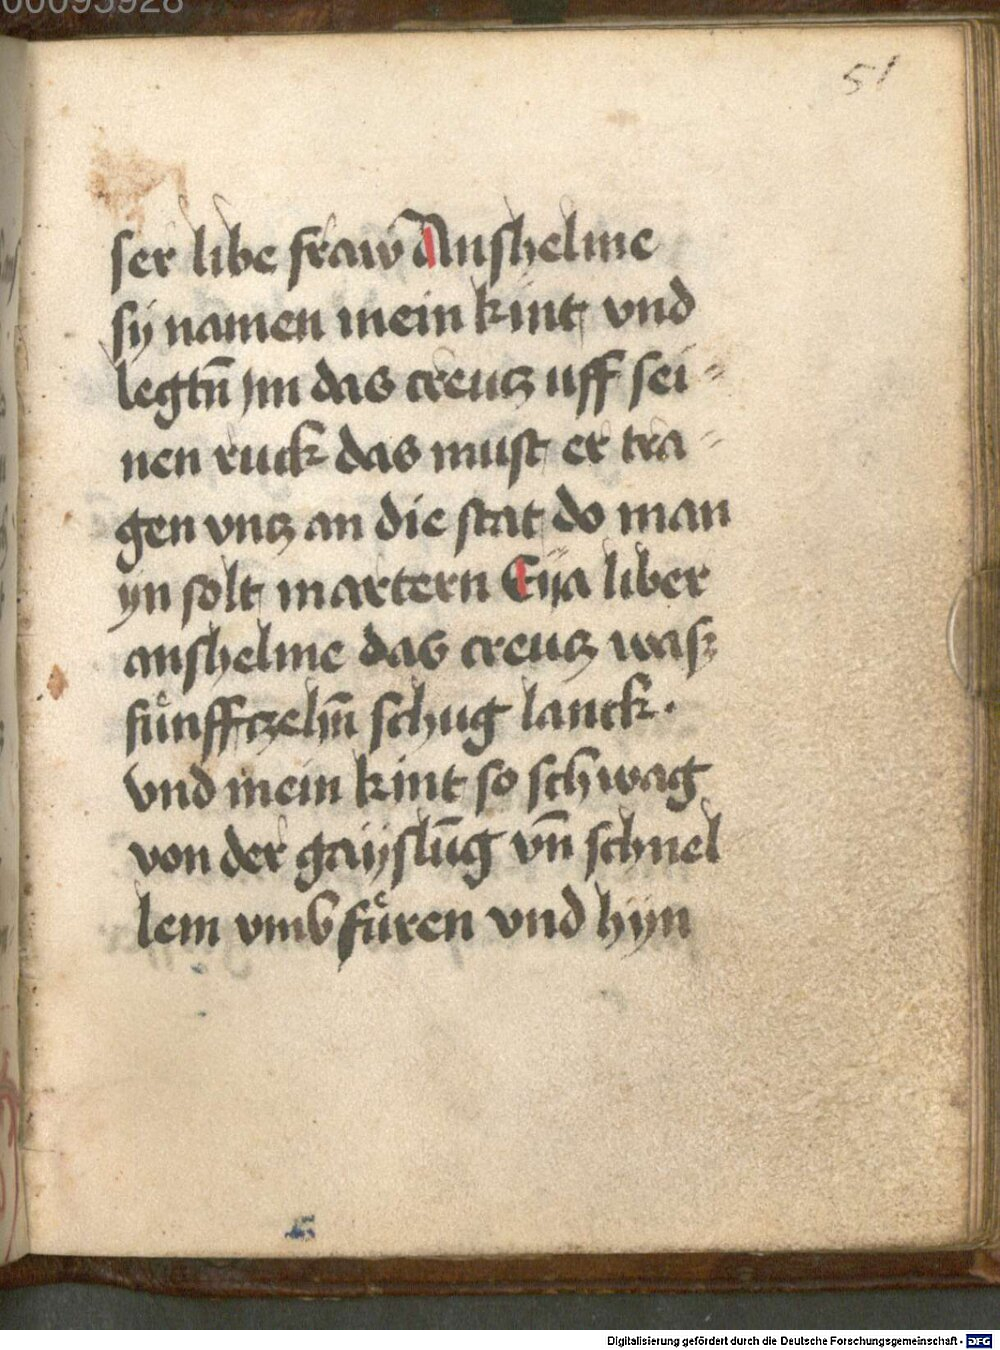 51
ser libe fraw Anshelme
sy namen mein kint vnd
legtn̄ jm das creutz uff sei-
nen ruck das must er tra-
gen vntz an die stat do man
yn solt martern Eÿa liber
anshelme das creutz wasz
fuͤnfftzehn̄ schug lanck.
vnd mein kint so schwag
von der gaÿslūg vn̄ schnel
lem vmb fuͤren vnd hÿn
Digitalisierung gefördert durch die Deutsche Forschungsgemeinschaft - DFG